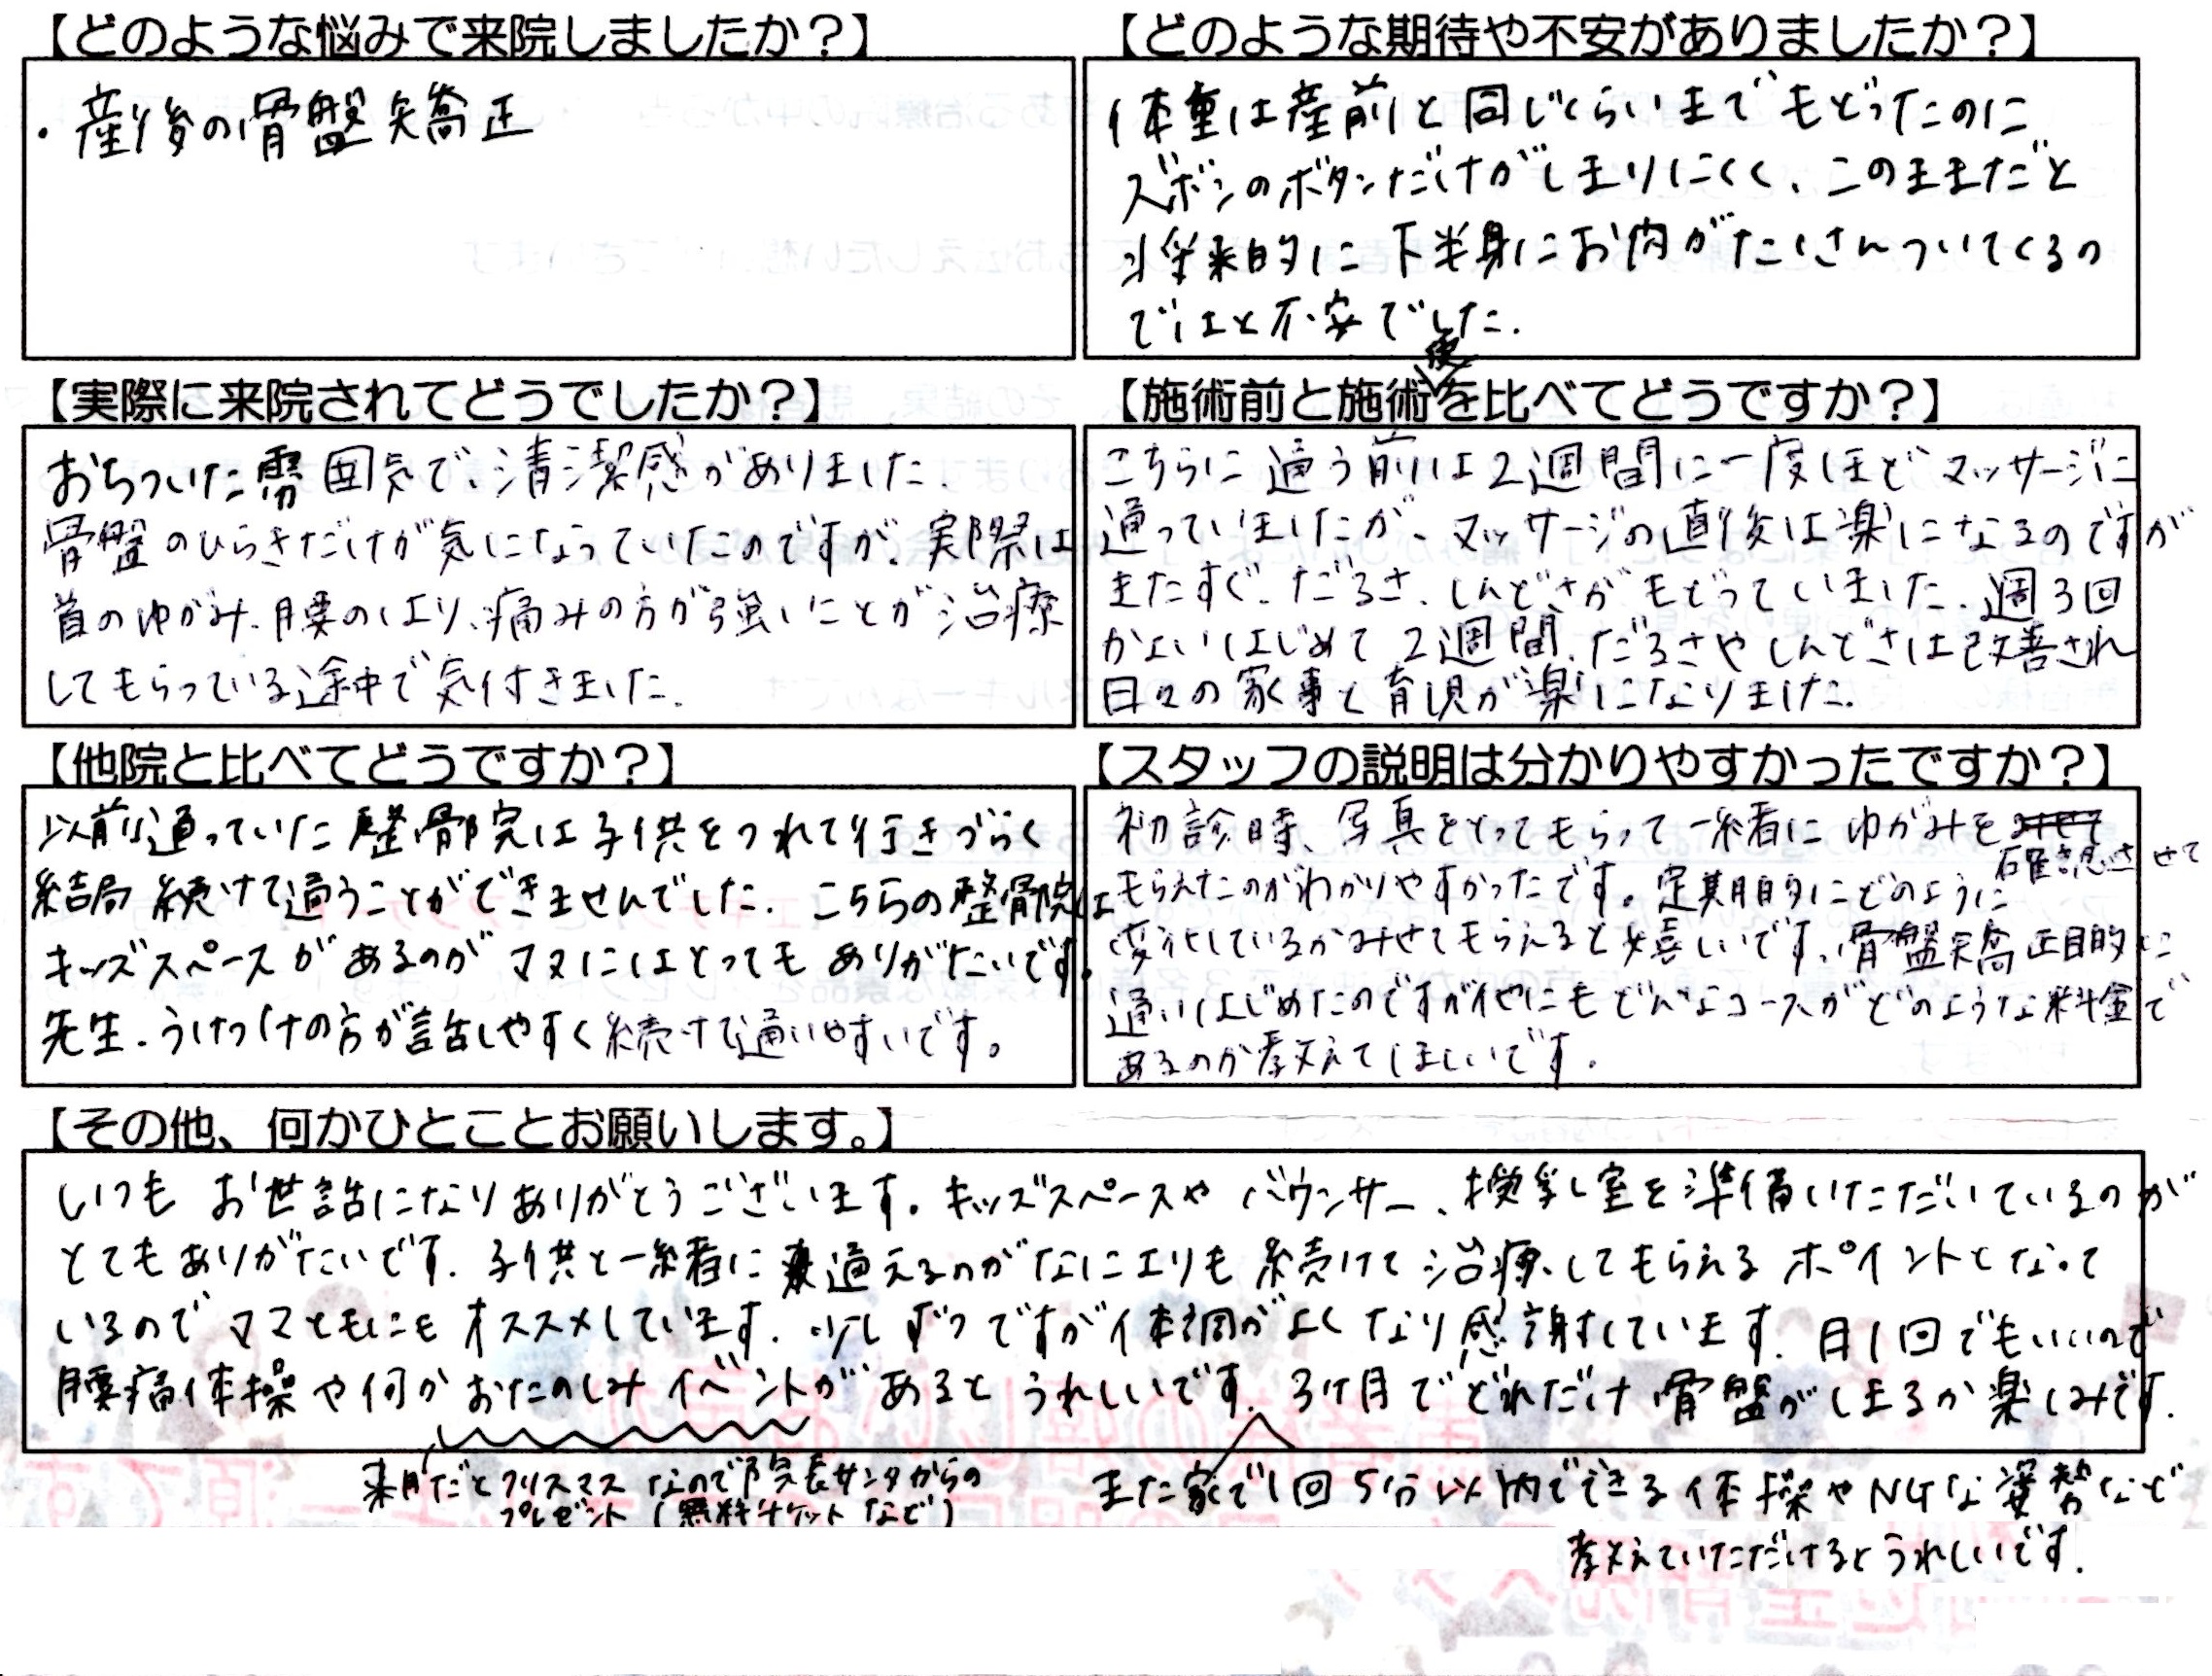 【どのような悩みで来院しましたか？】
・産後の骨盤矯正
【どのような期待や不安がありましたか？】
体重は産前と同じくらいまでもどったのに
ズボンのボタンだけがしまりにくく、このままだと
将来的に下半身にお肉がたくさんついてくるの
ではと不安でした.
【実際に来院されてどうでしたか？】
おちついた雰囲気で、清潔感がありました.
骨盤のひらきだけが気になっていたのですが、実際は
首のゆがみ、腰のはり、痛みの方が強いことが治療
してもらっている途中で気付きました.
【施術前と施術後を比べてどうですか？】
こちらに通う前は2週間に一度ほどマッサージに
通っていましたが、マッサージの直後は楽になるのですが
またすぐ、だるさ、しんどさがもどっていました.週3回
かよいはじめて2週間、だるさやしんどさは改善され
日々の家事と育児が楽になりました.
【他院と比べてどうですか？】
以前通っていた整骨院は子供をつれて行きづらく
結局続けて通うことができませんでした.こちらの整骨院は
キッズスペースがあるのがママにはとってもありがたいです。
先生.うけつけの方が話しやすく続けて通いやすいです。
【スタッフの説明は分かりやすかったですか？】
初診時、写真をとってもらって一緒にゆがみを
確認させて
もらえたのがわかりやすかったです。定期的にどのように
変化しているかみせてもらえると嬉しいです。骨盤矯正目的に
通いはじめたのですが他にもどんなコースがどのような料金で
あるのか教えてほしいです.
【その他、何かひとことお願いします。】
いつもお世話になりありがとうございます。キッズスペースやバウンサー、授乳室を準備いただいているのが
とてもありがたいです.子供と一緒に通えるのがなによりも続けて治療してもらえるポイントとなって
いるのでママともにもオススメしています.少しずつですが体調がよくなり感謝しています.月1回でもいいので
腰痛体操や何かおたのしみイベントがあるとうれしいです.3ヶ月でどれだけ骨盤がしまるか楽しみです.
来月だとクリスマスなので院長サンタからの
プレゼント(無料チケットなど)
また家で1回5分以内でできる体操やNGな姿勢など
教えていただけるとうれしいです.